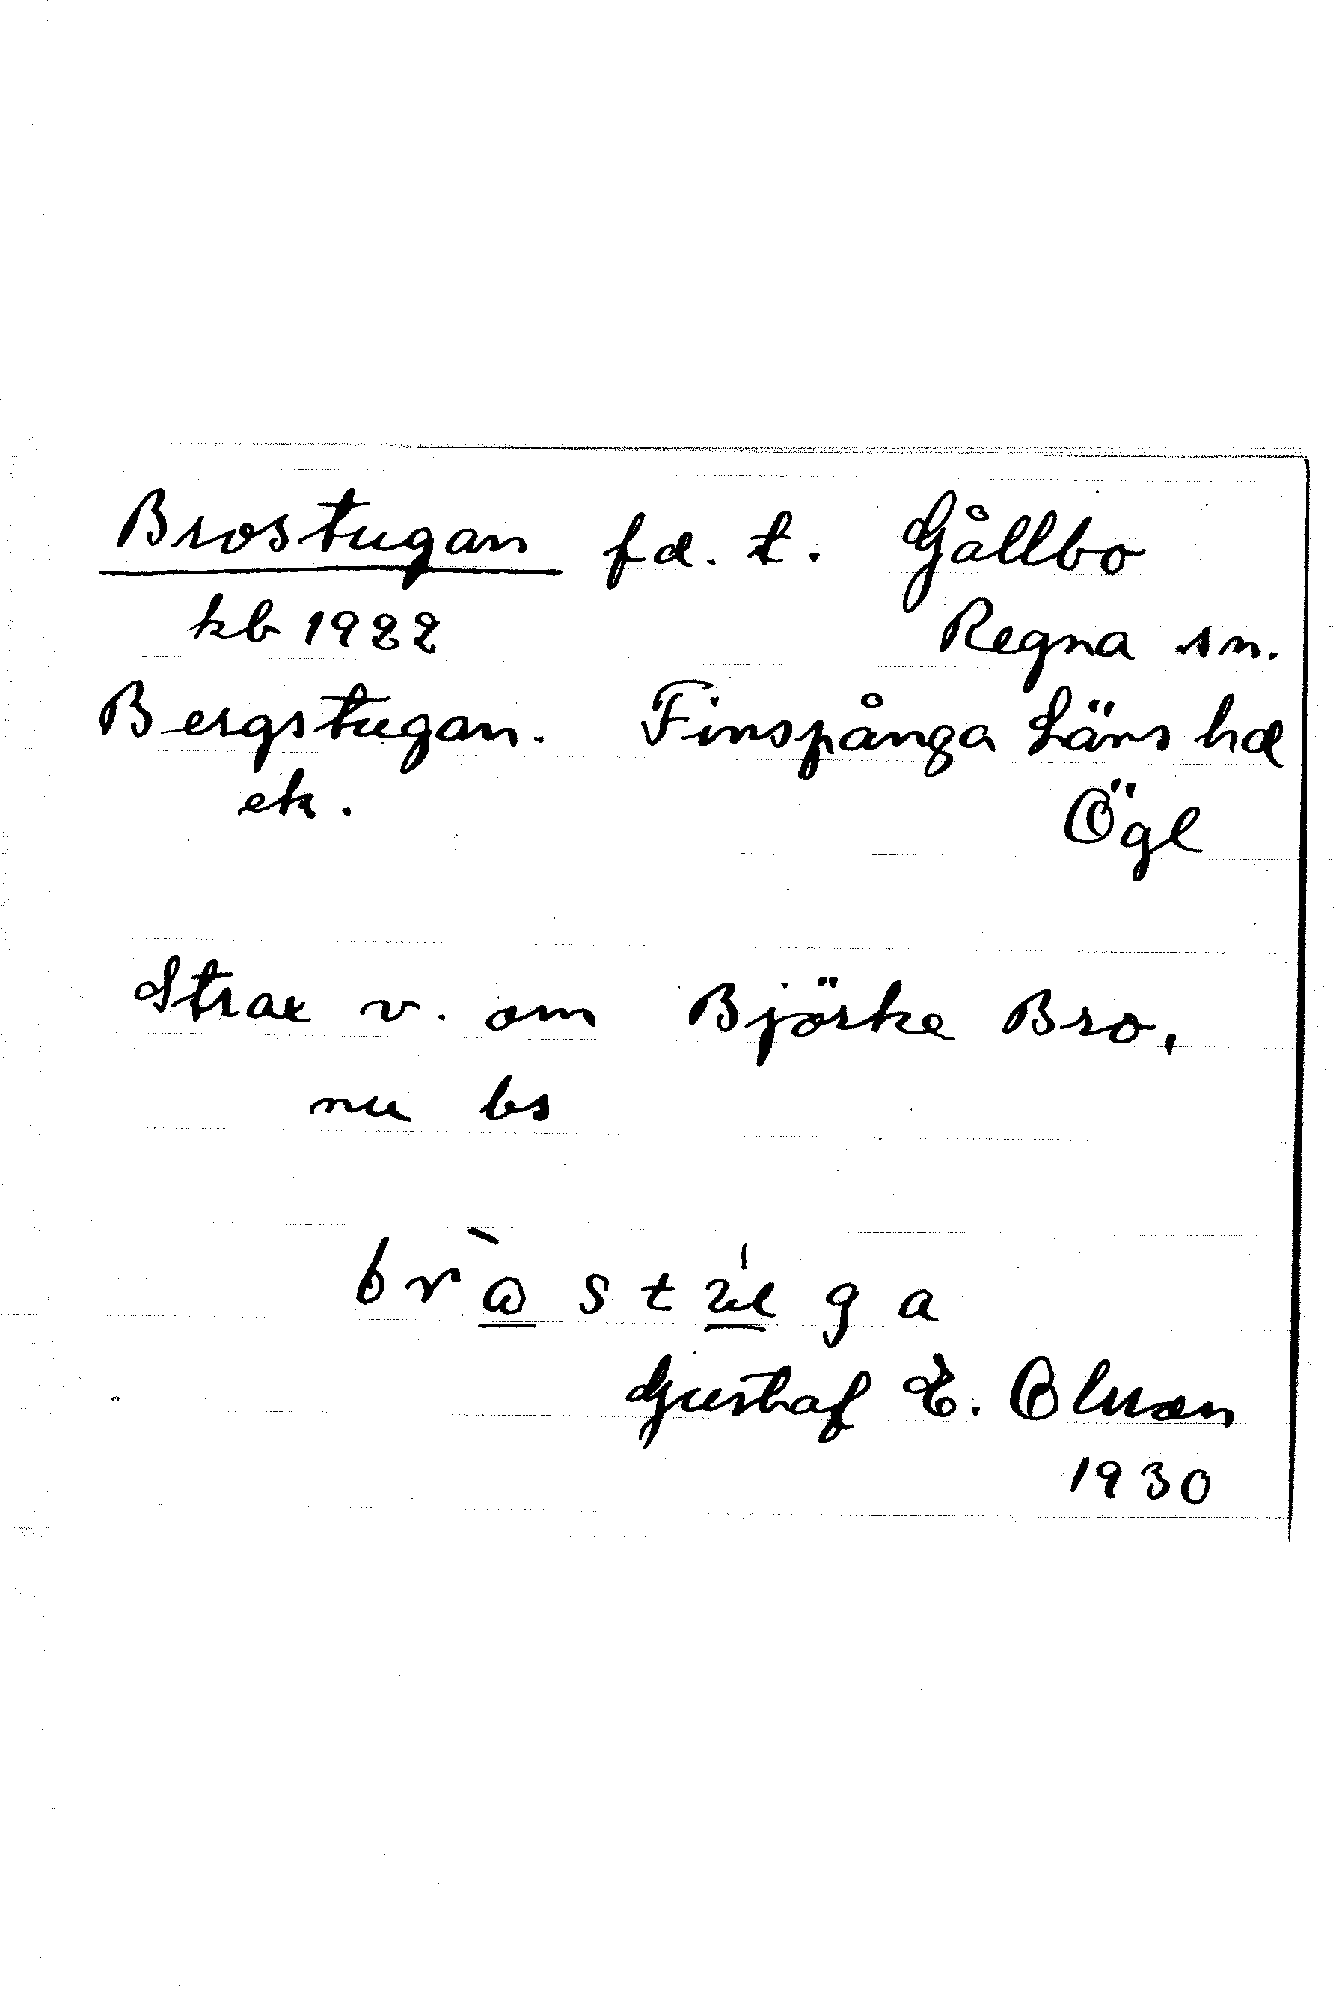 Brostugan fd. t. Gållbo
kb 1922 Regna sn.
Bergstugan. Finspånga Läns hd
ek. Ögl
Strax v. om Björke Bro,
nu bs
Gustaf E. Olsson
1930